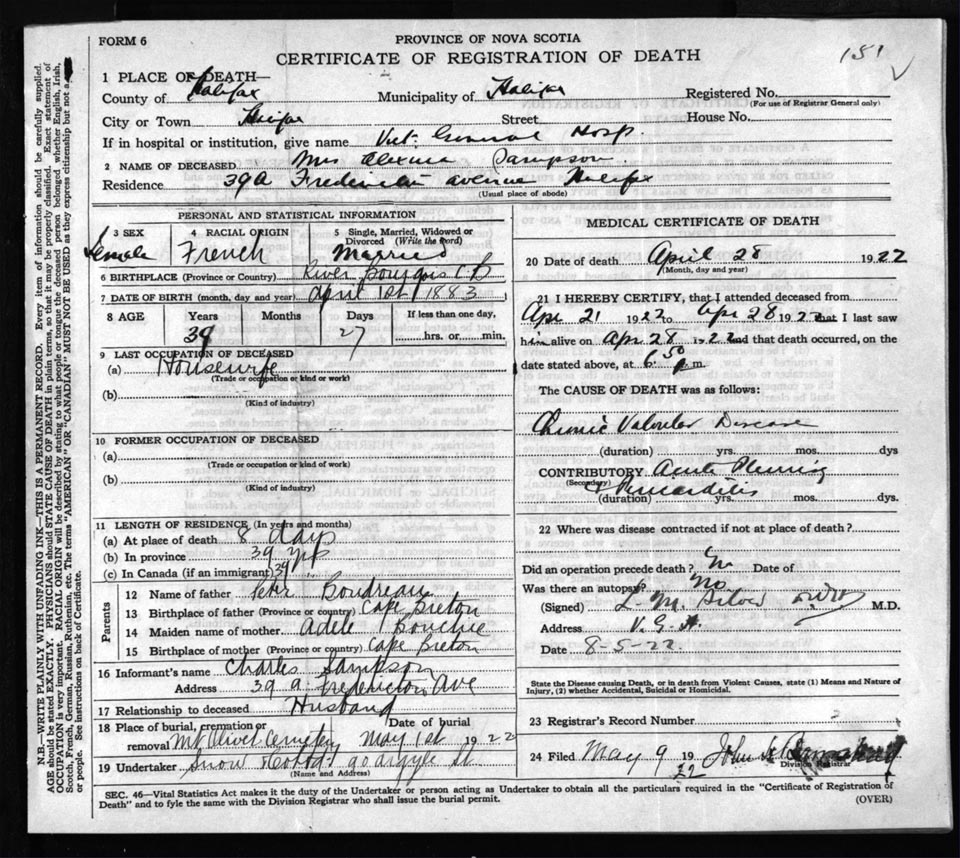 FORM 6
PROVINCE OF NOVA SCOTIA
CERTIFICATE OF REGISTRATION OF DEATH
151
1 PLACE OF DEATH—
County of Halifax Municipality of Halifax Registered No.
(For use of Registrar General only)
City or Town Halifax Street House No.
If in hospital or institution, give name Vict. General Hosp.
2 NAME OF DECEASED Mrs Elexina Sampson
Residence 39A Fredericton avenue Halifax
(Usual place of abode)
PERSONAL AND STATISTICAL INFORMATION
3 SEX
Female
4 RACIAL ORIGIN
French
5 Single, Married, Widowed or Divorced (Write the word)
Married
6 BIRTHPLACE (Province or Country) River Bourgois C.B
7 DATE OF BIRTH (month, day and year) april 1st 1883
8 AGE Years Months Days If less than one day,
39 27 hrs. or min.
9 LAST OCCUPATION OF DECEASED
(a) Housewife
(Trade or occupation or kind or work)
(b)
(Kind of industry)
10 FORMER OCCUPATION OF DECEASED
(a)
(Trade or occupation of kind or work)
(b)
(Kind of industry)
11 LENGTH OF RESIDENCE (In years and months)
(a) At place of death 8 days
(b) In province 39 yrs
(c) In Canada (if an immigrant) 39 "
Parents
12 Name of father Peter Boudreau
13 Birthplace of father (Province or country) Cape Breton
14 Maiden name of mother Adele Bouchie
15 Birthplace of mother (Province or country) Cape Breton
16 Informant's name Charles Sampson
Address 39 a Fredericton Ave
17 Relationship to deceased Husband
18 Place of burial, cremation or removal Mt Olivet Cemetery Date of burial May 1st 1922
19 Undertaker Snow & Co Ltd 90 argyle St
(Name and Address)
MEDICAL CERTIFICATE OF DEATH
20 Date of death April 28 1922
(Month, day and year)
21 I HEREBY CERTIFY, that I attended deceased from
Apr 21 1922 to Apr 28 1922 that I last saw
him alive on Apr 28 1922 and that death occurred, on the
date stated above, at 6.50 p.m.
The CAUSE OF DEATH was as follows:
Chronic Valvular Disease
(duration) yrs. mos. dys
CONTRIBUTORY Acute Pleurisy
(Secondary) & Pericarditis
(duration) yrs. mos. dys.
22 Where was disease contracted if not at place of death?
Did an operation precede death? No Date of
Was there an autopsy? No
(Signed) L. M. Silver M.D.
Address V. G. H.
Date 8-5-22.
State the Disease causing Death, or in death from Violent Causes, state (1) Means and Nature of
Injury, (2) whether Accidental, Suicidal or Homicidal.
23 Registrar's Record Number
24 Filed May 9 1922 John
Division Registrar
SEC. 46—Vital Statistics Act makes it the duty of the Undertaker or person acting as Undertaker to obtain all the particulars required in the "Certificate of Registration of
Death" and to fyle the same with the Division Registrar who shall issue the burial permit.
(OVER)
N.B.—WRITE PLAINLY WITH UNFADING INK—THIS IS A PERMANENT RECORD. Every item of information should be carefully supplied.
AGE should be stated EXACTLY. PHYSICIANS should STATE CAUSE OF DEATH in plain terms, so that it may be properly classified. Exact statement of
OCCUPATION is very important. RACIAL ORIGIN will be described by stating to what people or tongue the deceased person belonged, whether English, Irish,
Scotch, French, German, Russian, Ruthenian, etc. The terms "AMERICAN" OR "CANADIAN" MUST NOT BE USED as they express citizenship but not a
or people. See instructions on back of Certificate.